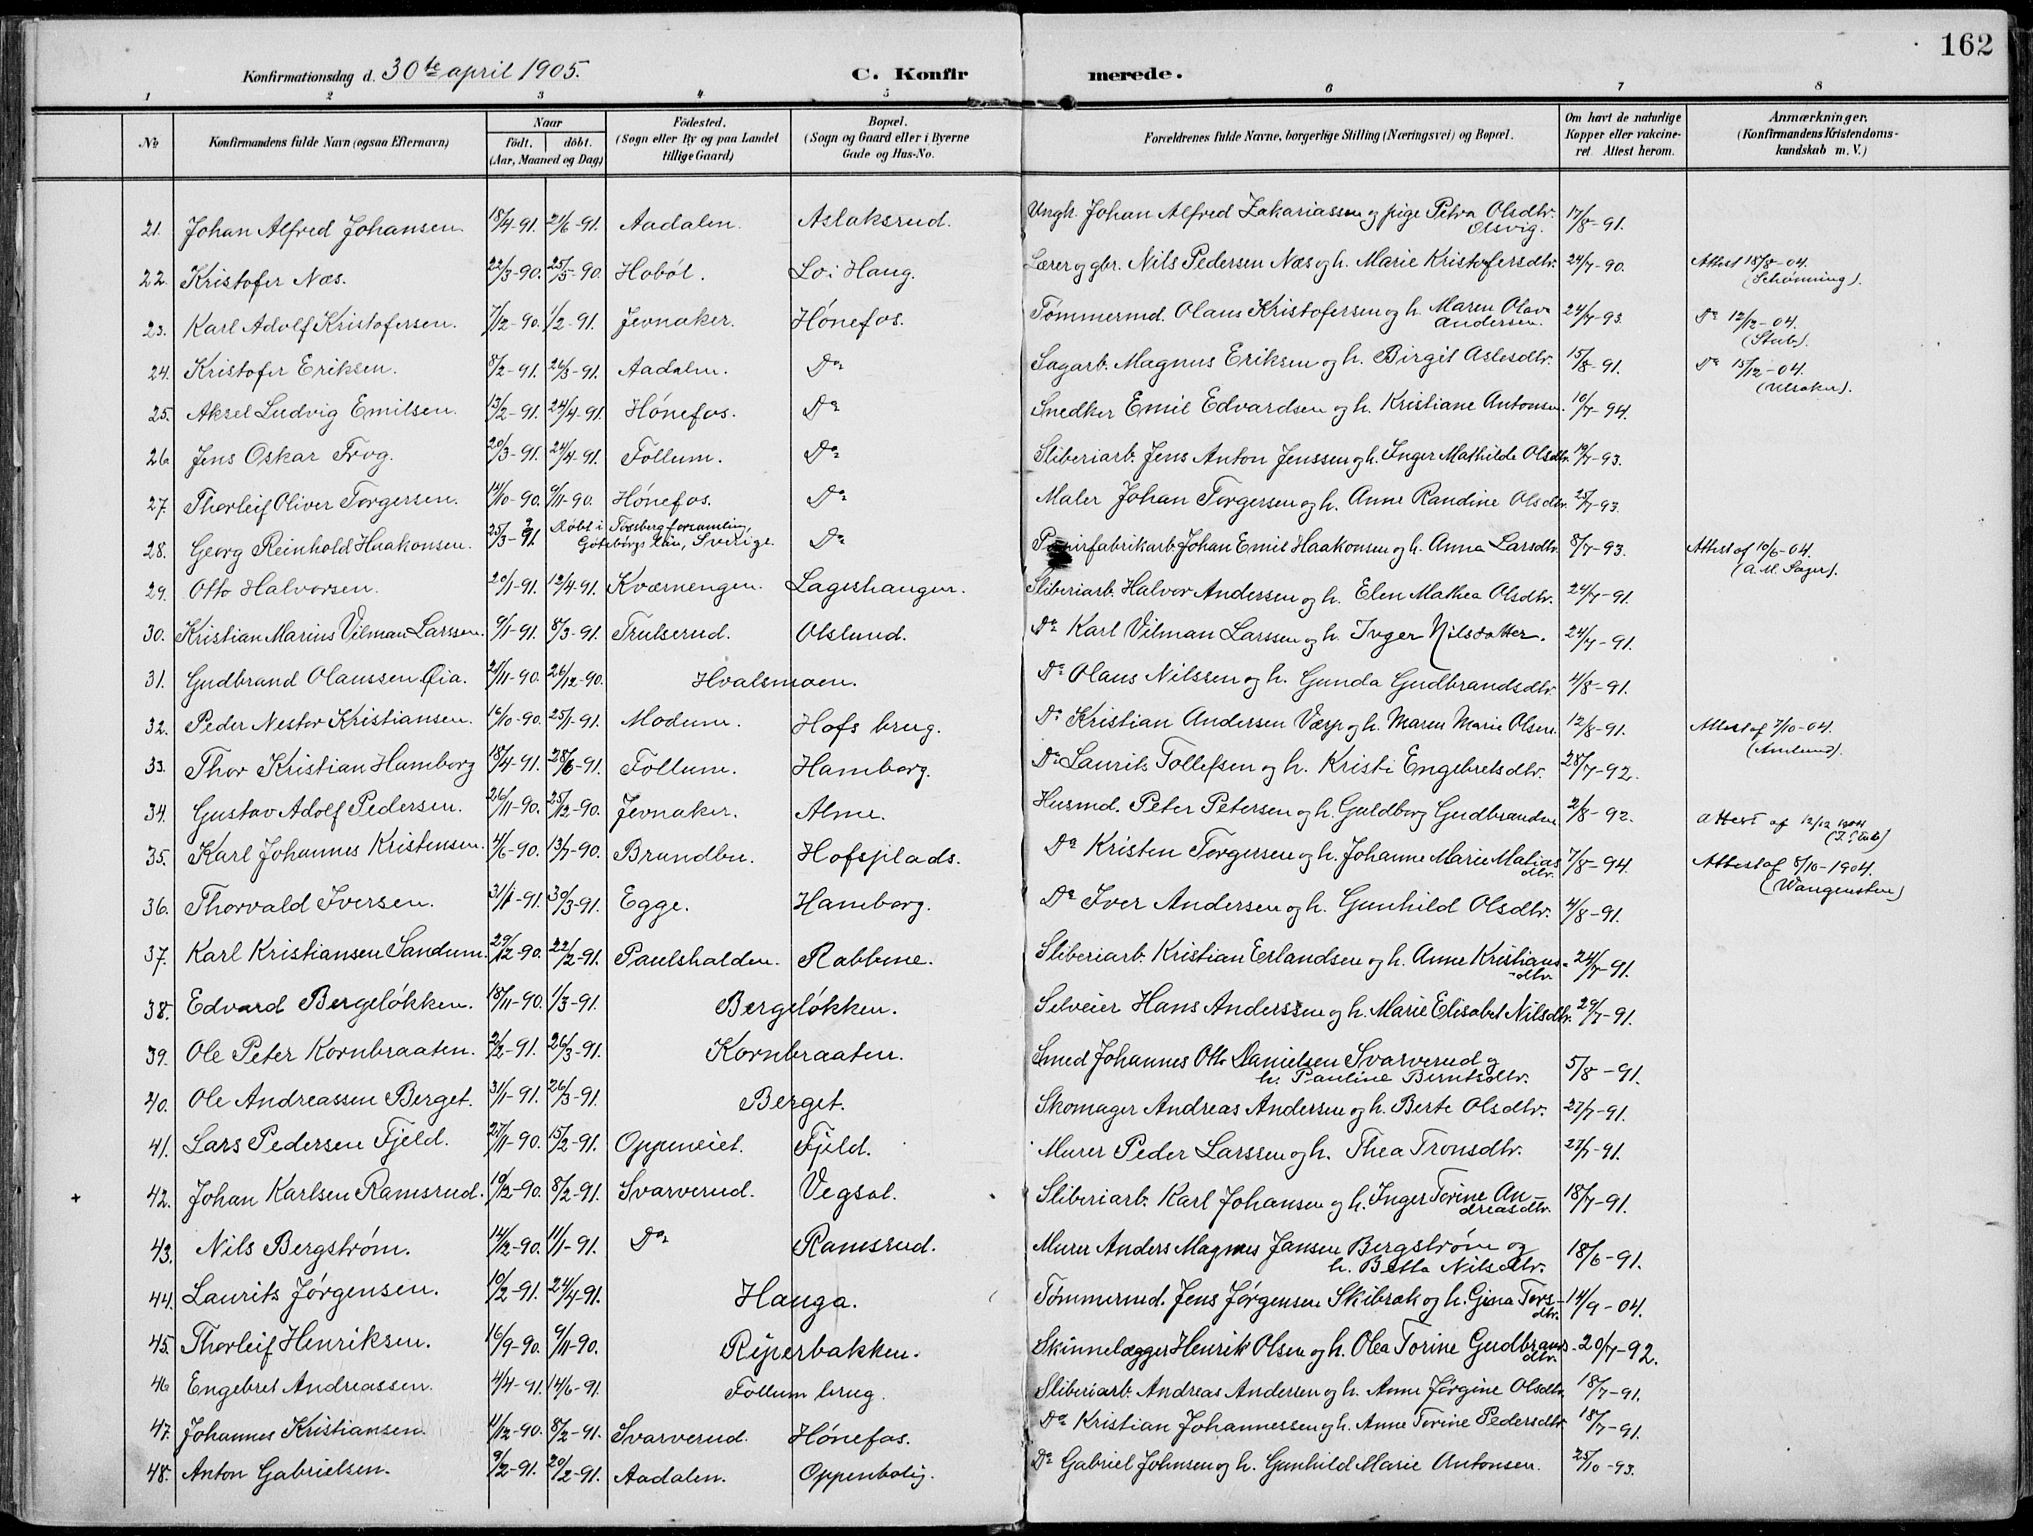 162
Konfirmationsdag d. 30te april 1905. C. Konfirmerede.
1 2 3 4 5 6 7 8
No Konfirmandens fulde Navn (ogsaa Efternavn) Naar født. døbt. (Aar, Maaned og Dag) Fødested. (Sogn eller By og paa Landet tillige Gaard) Bopæl. (Sogn og Gaard eller i Byerne Gade og Hus-No. Forældrenes fulde Navne, borgerlige Stilling (Næringsvei) og Bopæl. Om havt de naturlige Kopper eller vakcineret. Attest herom. Anmærkninger. (Konfirmandens Kristendomskundskab m. V.)
21. Johan Alfred Johansen. 18/4-91. 21/6-91. Aadalen. Aslaksrud. Ungk. Johan Alfred Zakariassen og pige Petra Olsdtr. Olsvig. 17/8-91.
22. Kristofer Næs. 22/3-90. 25/5-90. Hobøl. Lo i Haug. Lærer og gbr. Nils Pedersen Næs og h. Marie Kristofersdtr. 24/7-90. Attest 18/8-04. (Schønning).
23. Karl Adolf Kristofersen. 7/12-90. 1/2-91. Jevnaker. Hønefos. Tømmermd. Olaus Kristofersen og h. Maren Olava Andersen. 24/7-93. Do 12/12-04. (Stub).
24. Kristofer Eriksen. 8/2-91. 26/3-91. Aadalen. Do Sagarb. Magnus Eriksen og h. Birgit Aslesdtr. 15/8-91. Do 15/12-04. (Ulsaker).
25. Aksel Ludvig Emilsen. 13/2-91. 24/4-91. Hønefos. Do Snedker Emil Edvardsen og h. Kristiane Antonsen. 10/7-94.
26 Jens Oskar Trog. 20/3-91. 24/4-91. Follum. Do Sliberiarb. Jens Anton Jenssen og h. Inger Mathilde Olsdtr. 19/7-93.
27. Thorleif Oliver Torgersen. 12/10-90. 9/11-90. Hønefos. Do Maler Johan Torgersen og h. Anne Randine Olsdtr. 25/7-93.
28. Georg Reinhold Haakonsen. 25/3-91. Døbt i Tossberg forsamling, Göteborgs län, Sverige. Do Papirfabrikarb. Johan Emil Haakonsen og h. Anna Larsdtr. 8/7-93. Attest af 10/6-04. (A. M. Sager).
29. Otto Halvorsen. 20/1-91. 12/4-91. Kværnengen. Lageshaugen. Sliberiarb. Halvor Andersen og h. Elen Mathea Olsdtr. 24/7-91.
30. Kristian Marius Vilman Larssen. 9/1-91. 8/3-91. Trulserud. Olslund. Do Karl Vilman Larssen og h. Inger Nilsdatter. 24/7-91.
31. Gudbrand Olaussen Øia. 21/11-90. 26/12-90. Hvalsmoen. Do Olaus Nilssen og h. Gunda Gudbrandsdtr. 4/8-91.
32. Peder Nestor Kristiansen. 16/10-90. 25/1-91. Modum. Hofs brug. Do Kristian Andersen Værp og h. Maren Marie Olsen. 12/8-91. Attest af 7/10-04. (Amlund).
33. Thor Kristian Hamborg 18/4-91. 28/6-91. Follum. Hamborg. Do Laurits Tollefsen og h. Kristi Engebretsdtr. 28/7-92.
34. Gustav Adolf Pedersen. 26/11-90. 25/12-90. Jevnaker. Alme. Husmd. Peter Petersen og h. Guldborg Gudbrandsen 2/8-92. attest af 12/12 1904 (T. Stub)
35. Karl Johannes Kristensen. 4/6-90. 13/7-90. Brandbu. Hofsplads. Do Kristen Torgersen og h. Johanne Marie Matiasdtr. 7/8-94. Attest af 8/10-1904. (Wangensten)
36. Thorvald Iversen. 31/1-91. 30/3-91. Egge. Hamborg. Do Iver Andersen og h. Gunhild Olsdtr. 4/8-91.
37. Karl Kristiansen Sandum. 29/12-90. 22/2-91. Paulshalden. Rabbene. Sliberiarb. Kristian Erlandsen og h. Anne Kristiansdtr. 24/7-91.
38. Edvard Bergeløkken. 18/11-90. 1/3-91. Bergeløkken. Selveier Hans Anderssen og h. Marie Elisabet Nilsdtr. 29/7-91.
39. Ole Peter Kornbraaten. 2/2-91. 26/3-91. Kornbraaten. Smed Johannes Otto Danielsen Svarverud og h. Pauline Berntsdtr. 5/8-91.
40. Ole Andreassen Berget. 31/1-91. 26/3-91. Berget. Skomager Andreas Andersen og h. Berte Olsdtr. 27/7-91.
41. Lars Pedersen Fjeld. 27/11-90. 15/2-91. Oppeneiet. Fjeld. Murer Peder Larssen og h. Thea Tronsdtr. 27/7-91.
+ 42. Johan Karlsen Ramsrud. 19/12-90. 8/2-91. Svarverud. Vegsal. Sliberiarb. Karl Johansen og h. Inger Torine Andreasdtr. 18/7-91.
43. Nils Bergstrøm. 14/12-90. 11/1-91. Do Ramsrud. Murer Anders Magnes Jansen Bergstrøm og h. Betta Nilsdtr. 18/6-91.
44. Laurits Jørgensen. 10/2-91. 24/4-91. Hauga. Tømmermd. Jens Jørgensen Skibrak og h. Gina Torsdtr. 14/9-04.
45. Thorleif Henriksen. 16/9-90. 9/11-90. Riperbakken. Skinnelægger Henrik Olsen og h. Olea Torine Gudbrandsdtr. 20/7-92.
46 Engebret Andreassen. 4/4-91. 14/6-91. Follum brug. Sliberiarb. Andreas Andersen og h. Anne Jørgine Olsdtr. 18/7-91.
47. Johannes Kristiansen. 11/12-90. 8/2-91. Svarverud. Hønefos. Do Kristian Johannessen og h. Anne Torine Pedersdtr. 18/7-91.
48. Anton Gabrielsen. 9/2-91. 20/2-91. Aadalen. Oppenbolig. Do Gabriel Johnsen og h. Gunhild Marie Antonsen. 25/10-93.